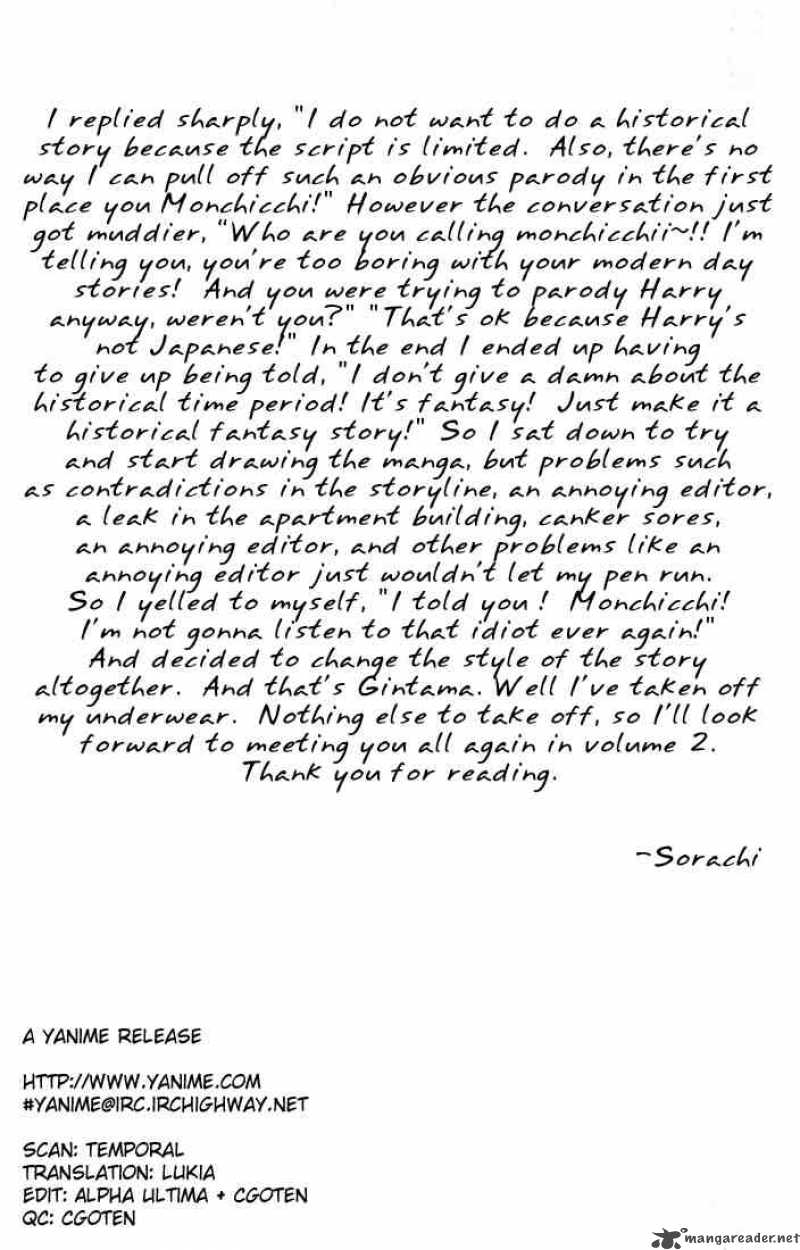 I replied sharply, "I do not want to do a historical
story because the script is limited. Also, there's no
way I can pull off such an obvious parody in the first
place you Monchicchi!" However the conversation just
got muddier, "Who are you calling monchicchii~!! I'm
telling you, you're too boring with your modern day
stories! And you were trying to parody Harry
anyway, weren't you?" "That's ok because Harry's
not Japanese!" In the end I ended up having
to give up being told, "I don't give a damn about the
historical time period! It's fantasy! Just make it a
historical fantasy story!" So I sat down to try
and start drawing the manga, but problems such
as contradictions in the storyline, an annoying editor,
a leak in the apartment building, canker sores,
an annoying editor, and other problems like an
annoying editor just wouldn't let my pen run.
So I yelled to myself, "I told you! Monchicchi!
I'm not gonna listen to that idiot ever again!"
And decided to change the style of the story
altogether. And that's Gintama. Well I've taken off
my underwear. Nothing else to take off, so I'll look
forward to meeting you all again in volume 2.
Thank you for reading.
~Sorachi
A YANIME RELEASE
HTTP://WWW.YANIME.COM
#YANIME@IRC.IRCHIGHWAY.NET
SCAN: TEMPORAL
TRANSLATION: LUKIA
EDIT: ALPHA ULTIMA + CGOTEN
QC: CGOTEN
mangareader.net